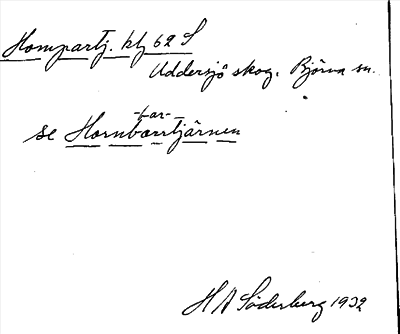 Hompartj. kbz 62 S
Uddersjö skog. Björna sn.
-tar-
se Hornborrtjärnen
H A Söderberg 1932